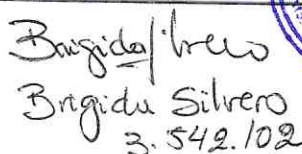 Brigida Silvero
Brigida Silvero
3.542.102